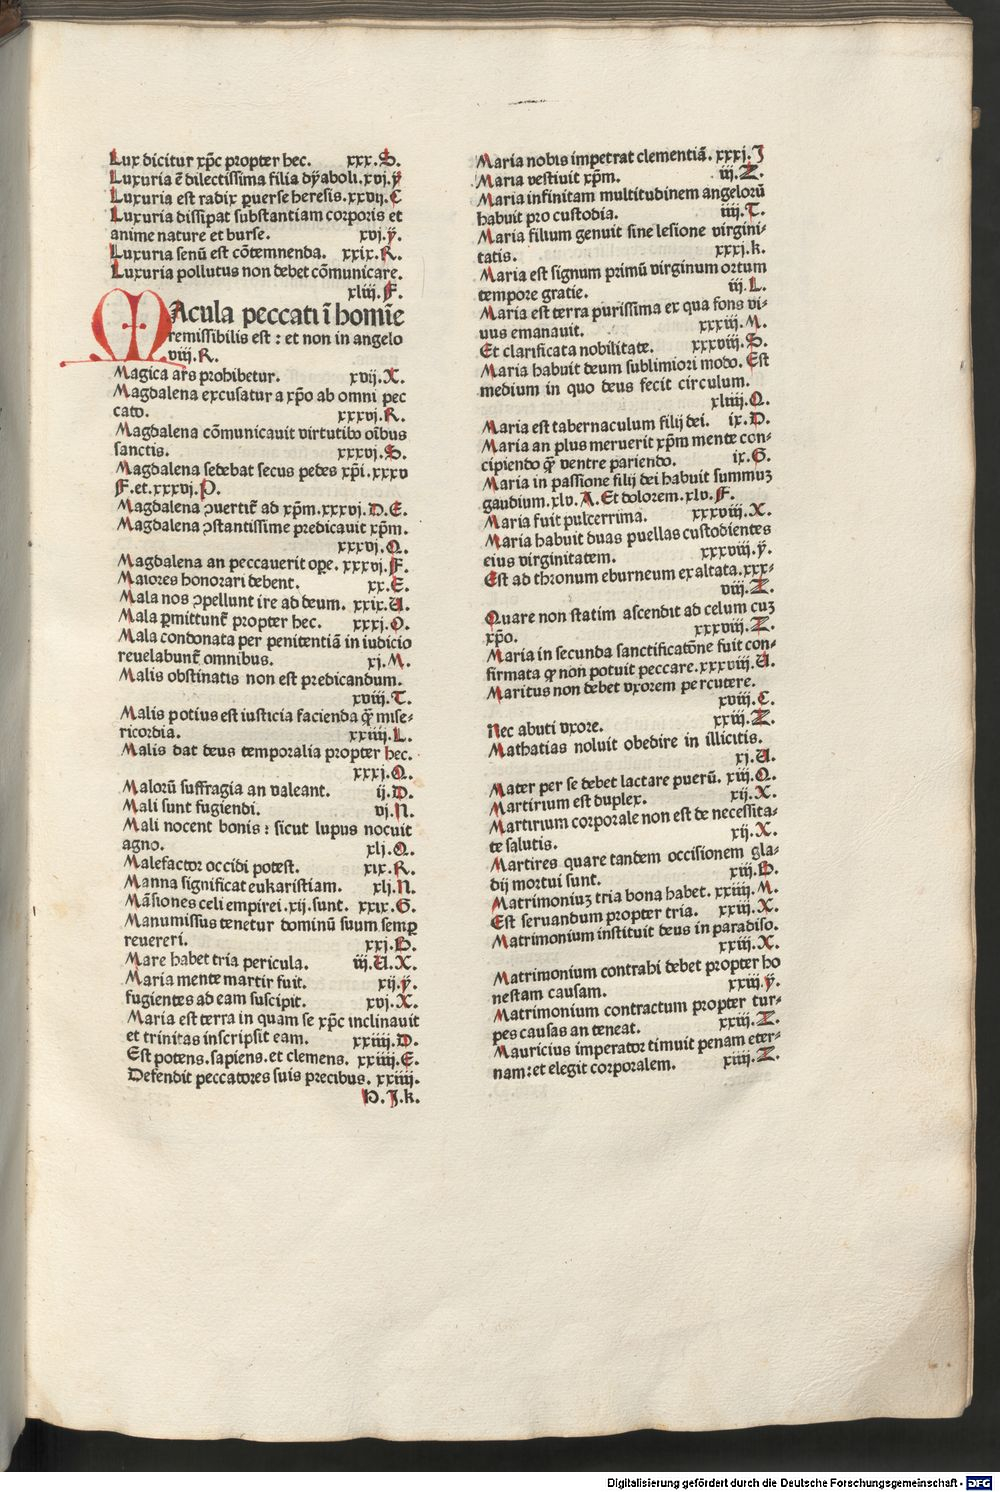 Lux dicitur xp̄c propter hec. xxx.S.
Luxuria ē dilectissima filia dyaboli.xvi.ÿ
Luxuria est radix puerse heresis.xxvij.C
Luxuria dissipat substantiam corporis et
anime nature et burse. xvj.ÿ.
Luxuria senū est cōtemnenda. xxix.R.
Luxuria pollutus non debet cōmunicare.
xliij.F.
MAcula peccati ī homīe
remissibilis est : et non in angelo
viij.R.
Magica ars prohibetur. xvij.X.
Magdalena excusatur a xp̄o ab omni pec
cato. xxxvj.R.
Magdalena cōmunicauit virtutibꝰ oībus
sanctis. xxxvj.S.
Magdalena sedebat secus pedes xp̄i.xxxv
F.et.xxxvj.P.
Magdalena ꝯuertit̄ ad xp̄m.xxxvj.D.E.
Magdalena ꝯstantissime predicauit xp̄m.
xxxvj.Q.
Magdalena an peccauerit oꝑe. xxxvj.F.
Maiores honorari debent. xx.E.
Mala nos ꝯpellunt ire ad deum. xxix.U.
Mala ꝑmittunt̄ propter hec. xxxj.O.
Mala condonata per penitentiā in iudicio
reuelabunt̄ omnibus. xj.M.
Malis obstinatis non est predicandum.
xviij.T.
Malis potius est iusticia facienda q̄ʒ mise-
ricordia. xxiiij.L.
Malis dat deus temporalia propter hec.
xxxj.Q.
Malorū suffragia an valeant. ij.D.
Mali sunt fugiendi. vj.N.
Mali nocent bonis : sicut lupus nocuit
agno. xlj.Q.
Malefactor occidi potest. xix.R.
Manna significat eukaristiam. xlj.N.
Māsiones celi empirei.xij.sunt. xxix.G.
Manumissus tenetur dominū suum semꝑ
reuereri. xxj.B.
Mare habet tria pericula. iij.U.X.
Maria mente martir fuit. xij.ÿ.
fugientes ad eam suscipit. xvj.X.
Maria est terra in quam se xp̄c inclinauit
et trinitas inscripsit eam. xxiiij.D.
Est potens.sapiens.et clemens. xxiiij.E.
Defendit peccatores suis precibus. xxiiij.
P.J.k.
Maria nobis impetrat clementiā. xxxj.J
Maria vestiuit xp̄m. iij.Z.
Maria infinitam multitudinem angelorū
habuit pro custodia. iiij.T.
Maria filium genuit sine lesione virgini-
tatis. xxxj.k.
Maria est signum primū virginum ortum
tempore gratie. iij.L.
Maria est terra purissima ex qua fons vi-
uus emanauit. xxxiij.M.
Et clarificata nobilitate. xxxviij.S.
Maria habuit deum sublimiori modo. Est
medium in quo deus fecit circulum.
xliiij.Q.
Maria est tabernaculum filij dei. ix.D.
Maria an plus meruerit xp̄m mente con-
cipiendo q̄ʒ ventre pariendo. ix.G.
Maria in passione filij dei habuit summuʒ
gaudium.xlv.A.Et dolorem.xlv.F.
Maria fuit pulcerrima. xxxviij.X.
Maria habuit duas puellas custodientes
eius virginitatem. xxxviij.ÿ.
Est ad thronum eburneum exaltata.xxx-
viij.Z.
Quare non statim ascendit ad celum cuʒ
xp̄o. xxxviij.Z.
Maria in secunda sanctificatōne fuit con-
firmata ꝙ non potuit peccare.xxxviij.U.
Maritus non debet vxorem percutere.
xviij.C.
Nec abuti vxore. xxiij.Z.
Mathatias noluit obedire in illicitis.
xj.U.
Mater per se debet lactare puerū. xiij.Q.
Martirium est duplex. xij.X.
Martirium corporale non est de necessita-
te salutis. xij.X.
Martires quare tandem occisionem gla-
dij mortui sunt. xiij.B.
Matrimoniuʒ tria bona habet. xxiiij.M.
Est seruandum propter tria. xxiij.X.
Matrimonium instituit deus in paradiso.
xxiij.X.
Matrimonium contrahi debet propter ho
nestam causam. xxiij.ÿ.
Matrimonium contractum propter tur-
pes causas an teneat. xxiij.Z.
Mauricius imperator timuit penam eter-
nam:et elegit corporalem. xiiij.Z.
Digitalisierung gefördert durch die Deutsche Forschungsgemeinschaft - DFG